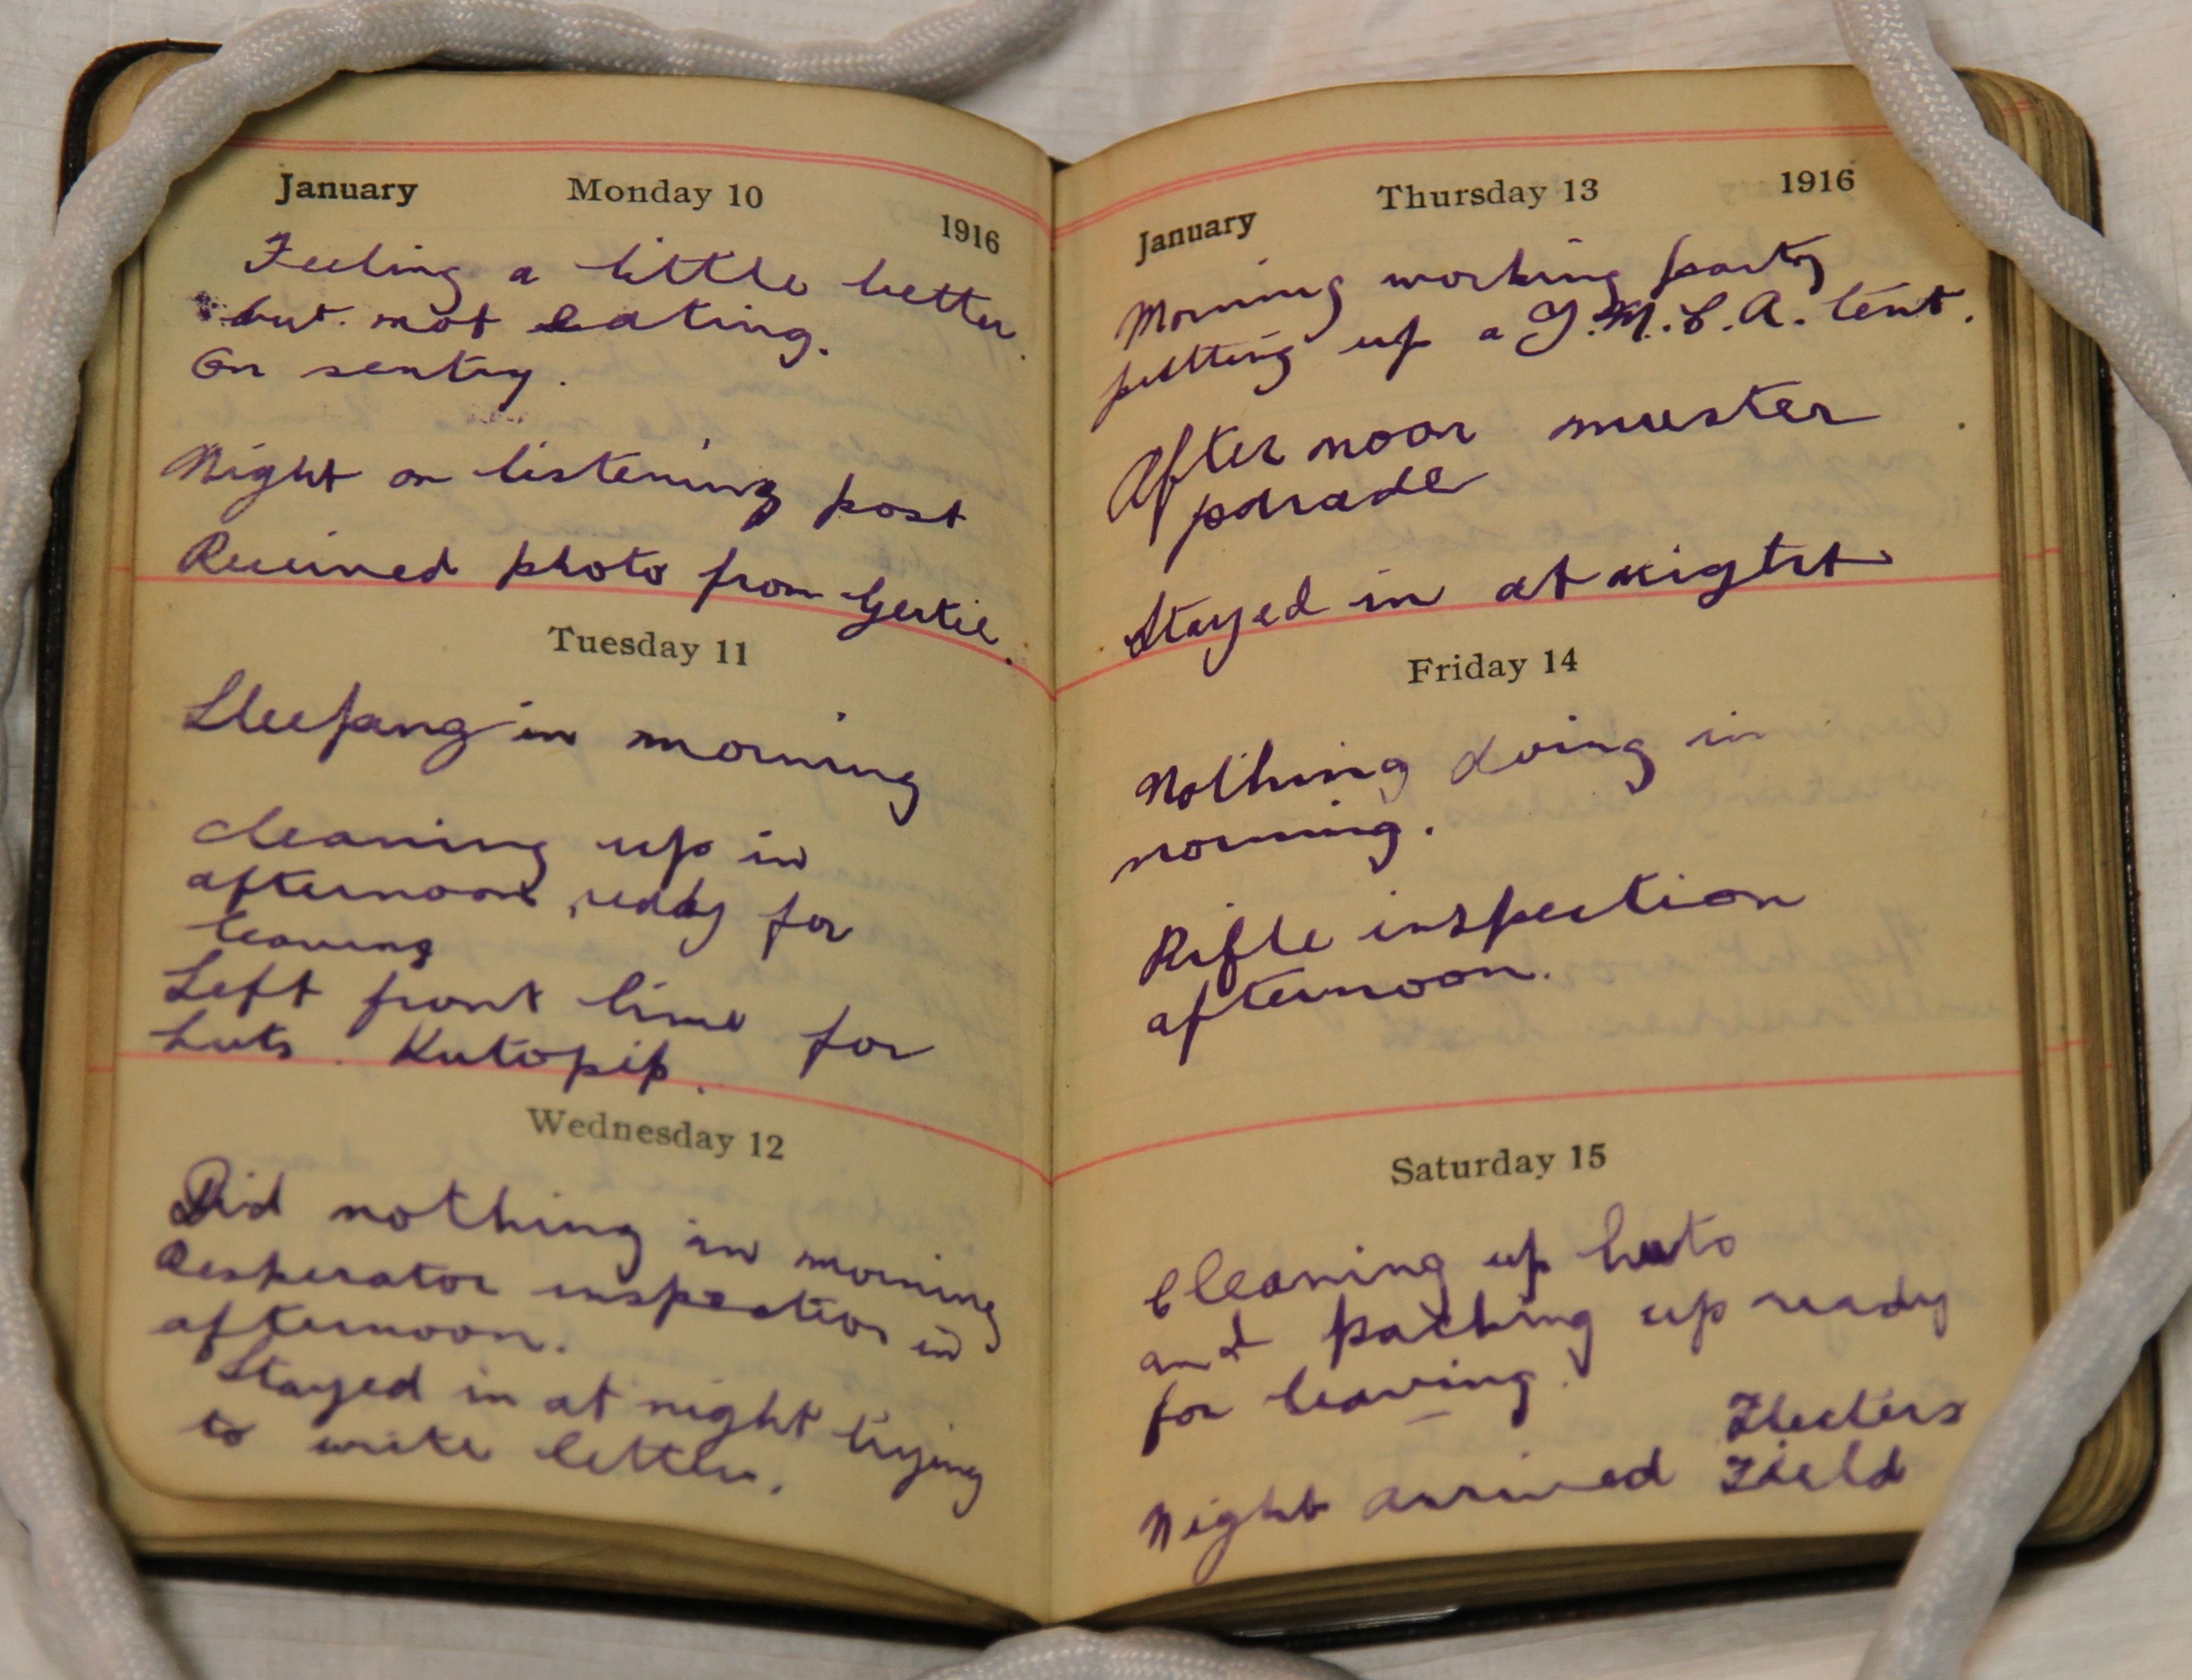 January Monday 10 1916
Feeling a little better
but not eating.
On sentry.
Night on listening post
Received photo from Gertie.
Tuesday 11
Sleeping in morning
cleaning up in
afternoon ready for
leaving
Left front line for
huts. Kutopip.
Wednesday 12
Did nothing in morning
Resperator inspection in
afternoon.
Stayed in at night trying
to write letter.
January Thursday 13 1916
Morning working party
putting up a Y.M.C.A. tent.
After noon muster
parade
Stayed in at night
Friday 14
Nothing doing in
morning.
Rifle inspection
afternoon.
Saturday 15
Cleaning up huts
and packing up ready
for leaving.
Flecters
Night arrived Field